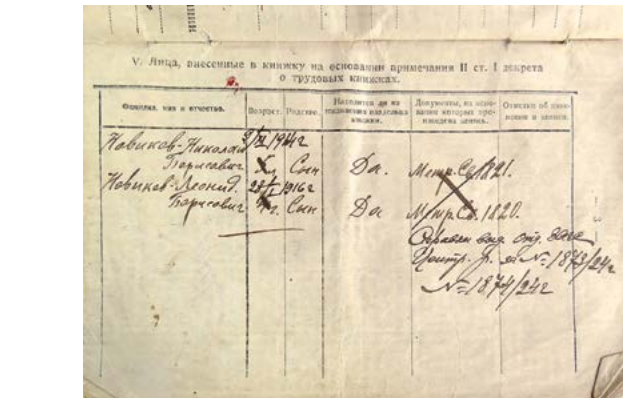 V. Лица, внесенные в книжку на основании примечания II ст. I декрета
о трудовых книжках.
Фамилия, имя и отчество.
Возраст.
Родство.
Находится ли на
иждивении владельца
книжки.
Документы, на осно-
вании которых про-
изведена запись.
Отметки об изме-
нении в записи.
Новиков-Николай 9/XI 1914г
Борисович Сын Да. Метр. Св. 1821.
Новиков-Леонид. 28/I 1916г
Борисович Сын Да Метр. Св. 1820.
Загс
Центр. р. за №: 1873/24г
№ 1874/24г